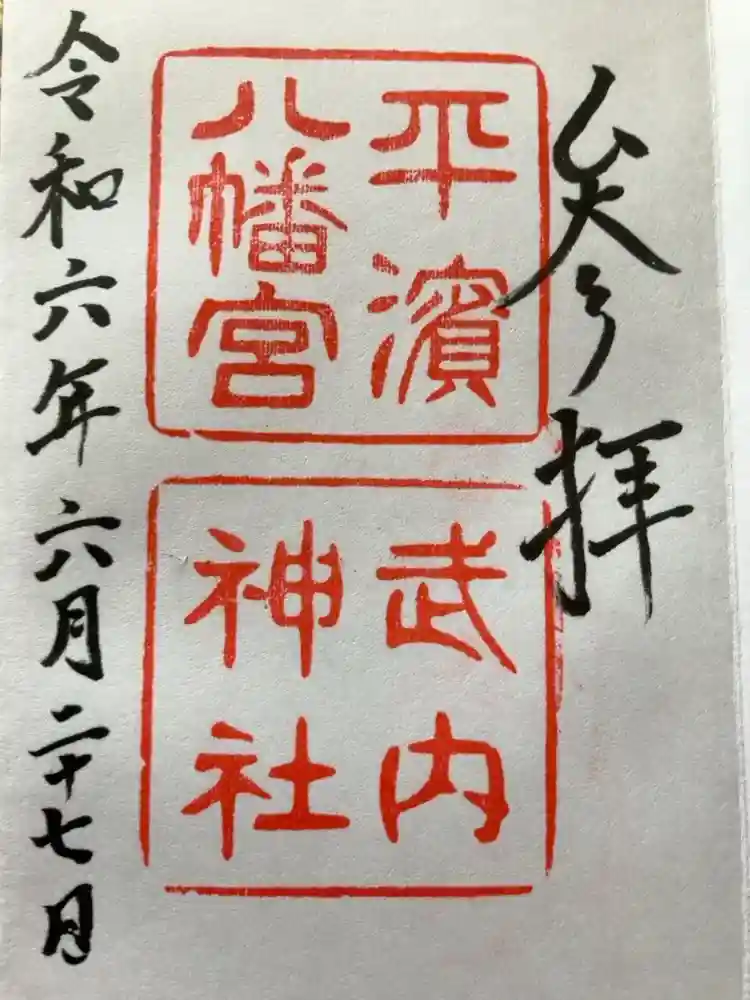 参拝
平濱
八幡宮
武内
神社
令和六年六月二十七月